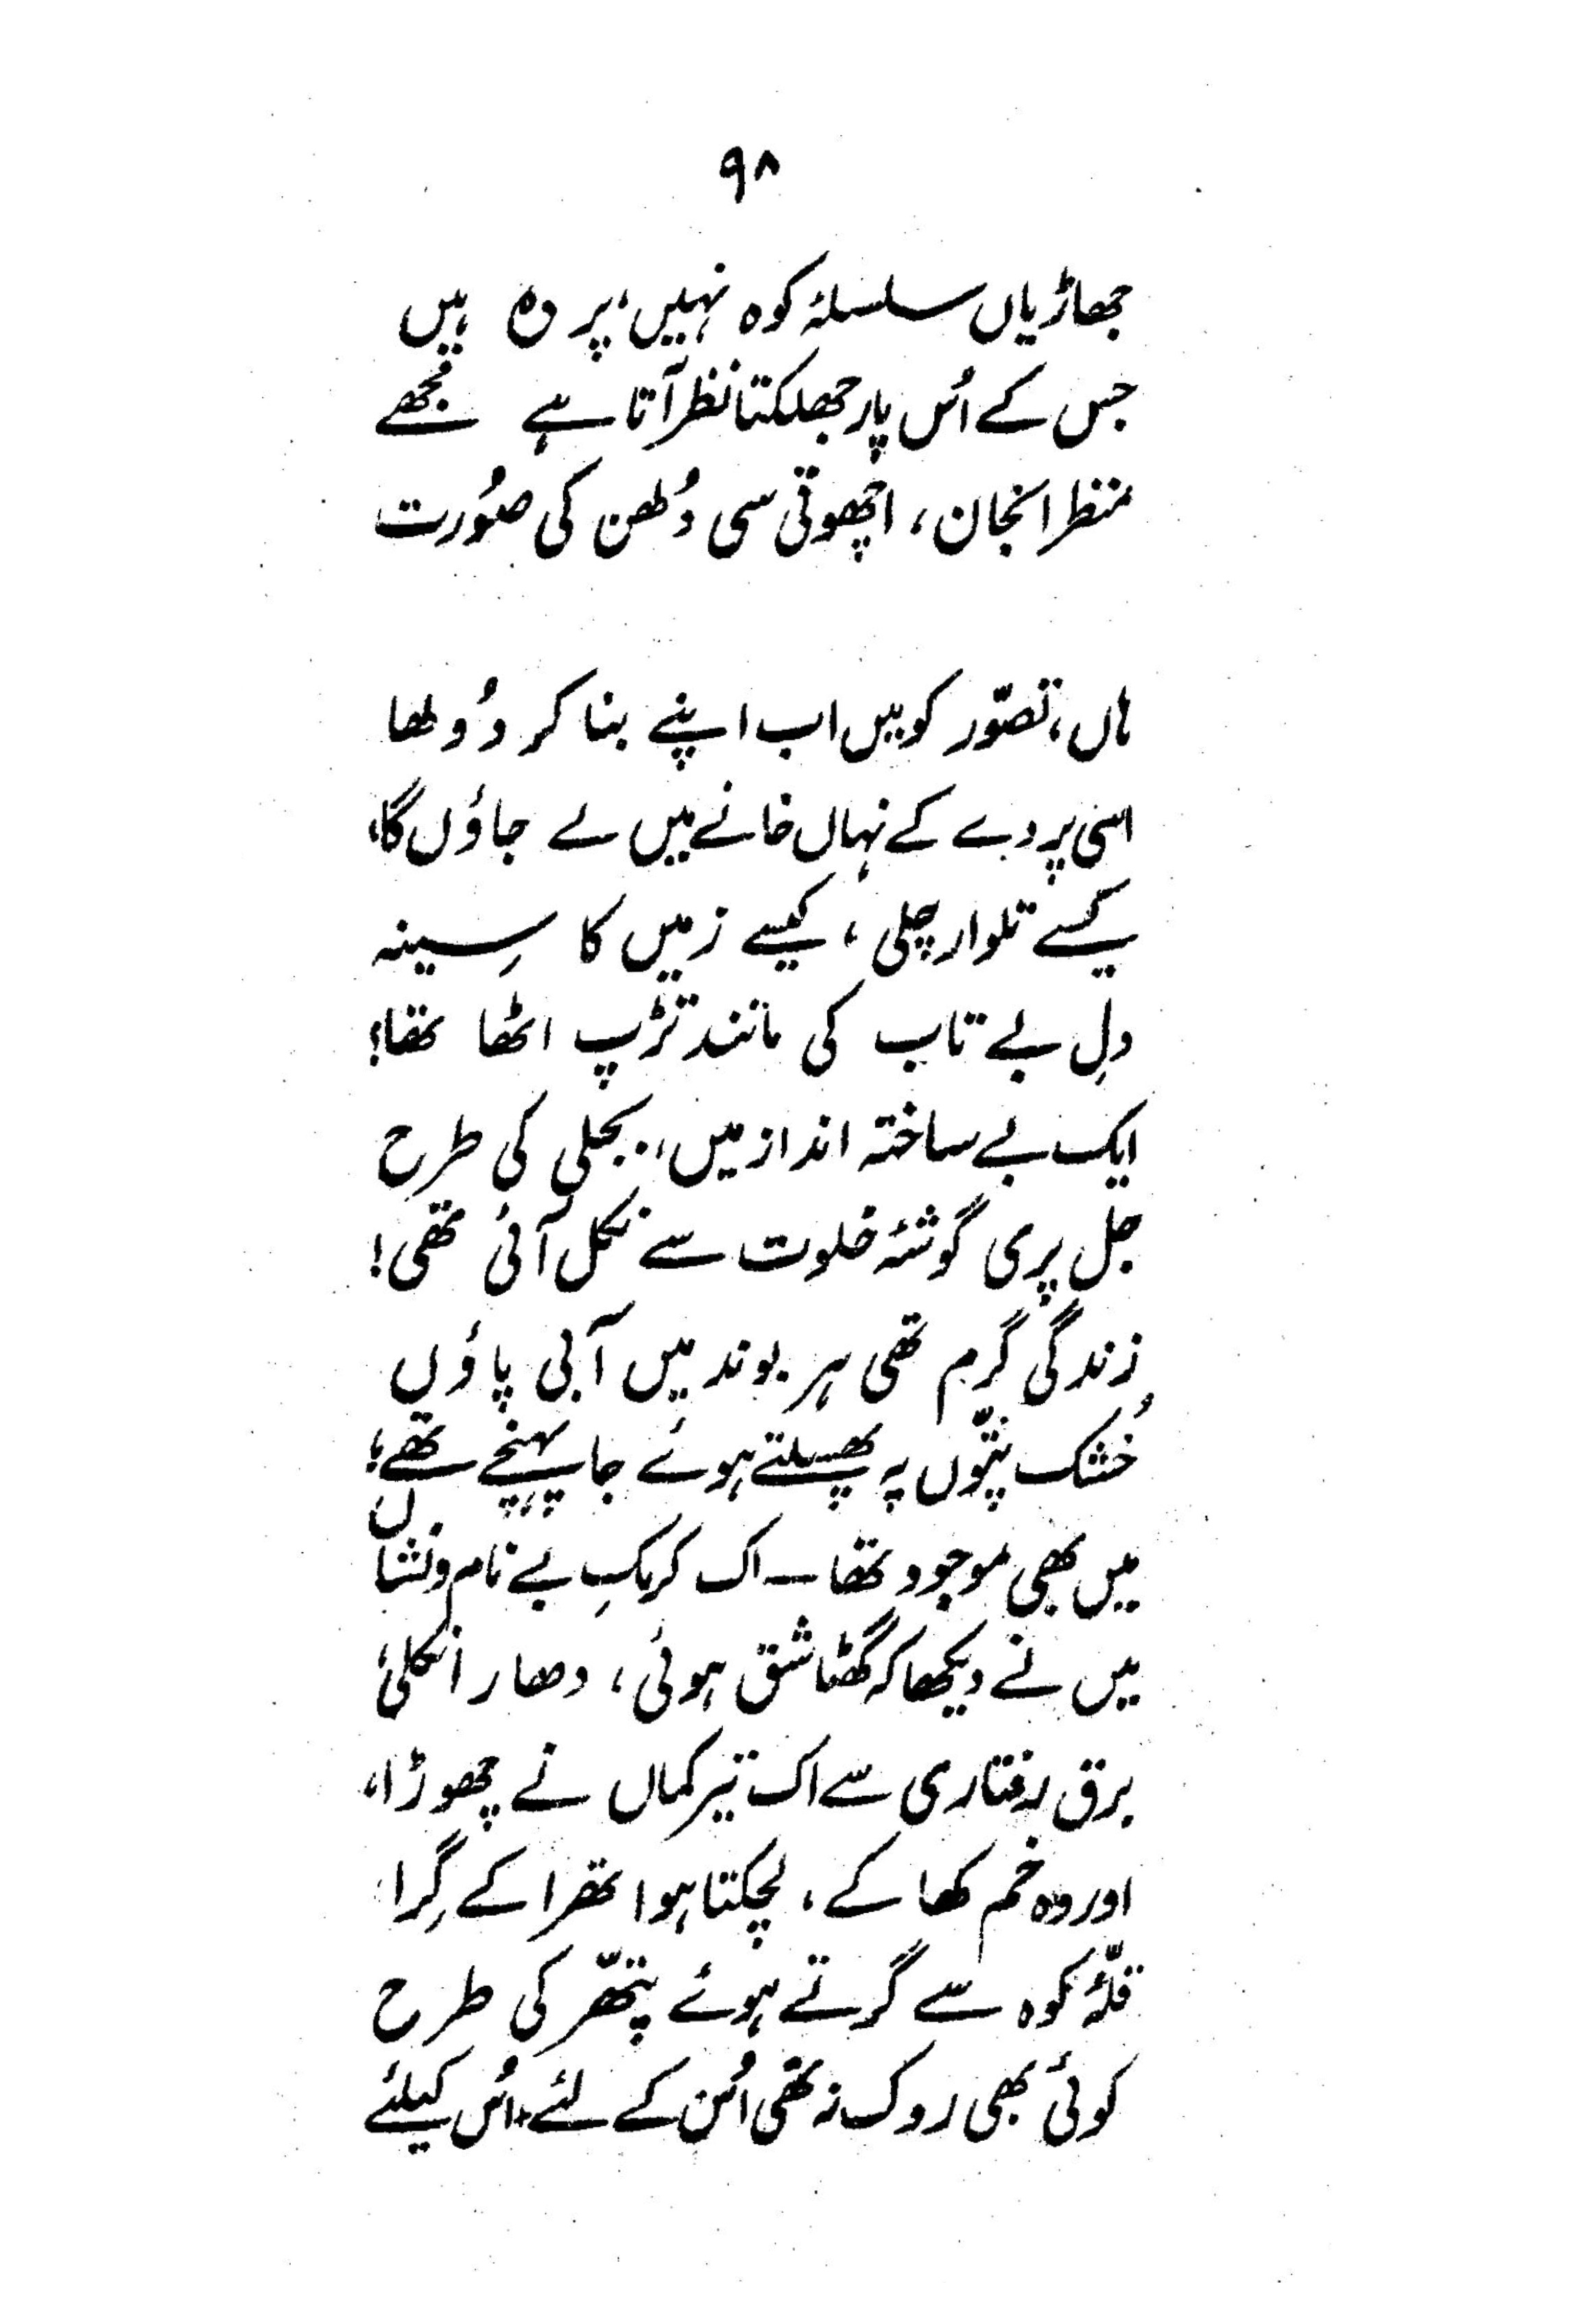 ۹۸
جھاڑیاں سلسلۂ کوہ نہیں، پردہ ہیں
جس کے اُس پار جھلکتا نظر آتا ہے مُجھے
منظر انجان، اچھوتی سی دُلھن کی صُورت
ہاں، تصوّر کو میں اب اپنے بنا کر دُولھا
اسی پردے کے نہاں خانے میں لے جاؤں گا،
کیسے تلوار چلی، کیسے زمیں کا سِینہ
دلِ بے تاب کی مانند تڑپ اٹھا تھا؟
ایک بے ساختہ انداز میں، بجلی کی طرح
جل پری گوشۂ خلوت سے نکل آئی تھی!
زندگی گرم تھی ہر بوند میں آبی پاؤں
خُشک پتّوں پہ پھسلتے ہوئے جا پہنچے تھے؛
میں بھی موجود تھا ــ اک کرمکِ بے نام و نشاں
میں نے دیکھا کہ گھٹا شق ہوئی، دھارا نکلی،
برق رفتاری سے اک تیر کماں نے چھوڑا،
اور وہ خم کھا کے، لچکتا ہوا تھرا کے گِرا
قلّۂ کوہ سے گرتے ہوئے پتھّر کی طرح
کوئی بھی روک نہ تھی اُس کے لئے، اُس کیلئے